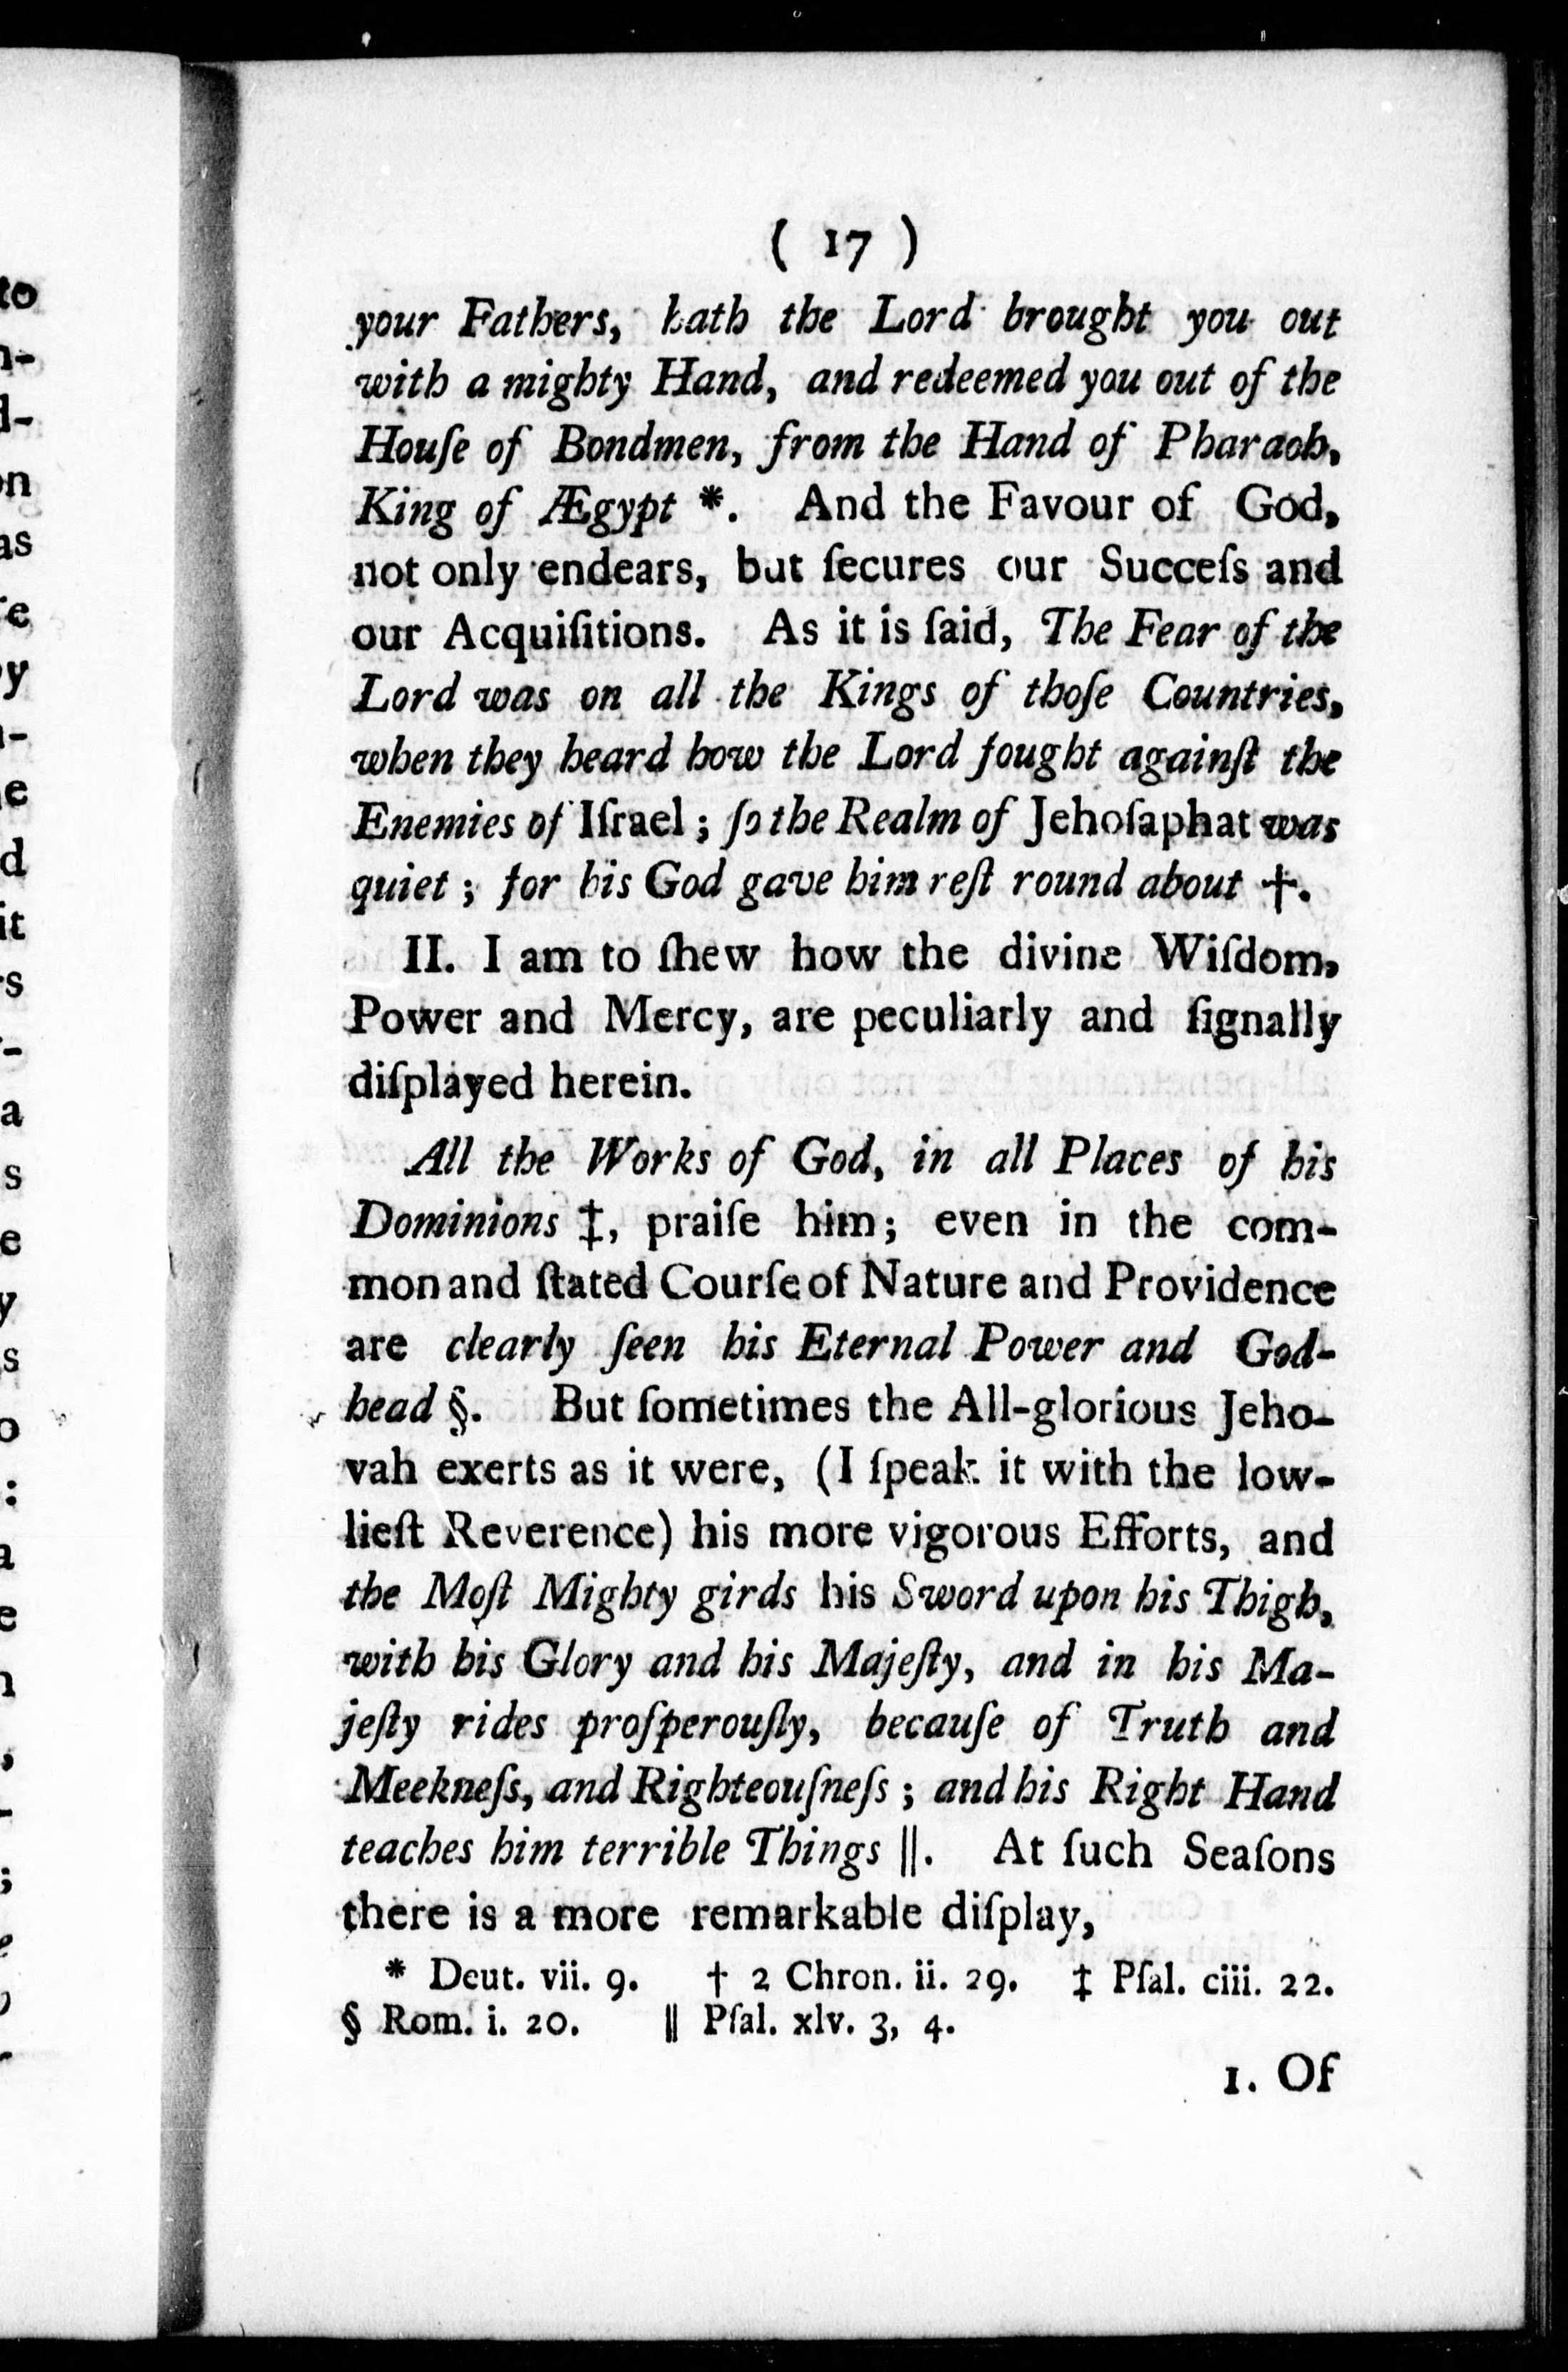 ( 17 )
your Fathers, hath the Lord brought you out
with a mighty Hand, and redeemed you out of the
Houſe of Bondmen, from the Hand of Pharaoh,
King of Ægypt *. And the Favour of God,
not only endears, but ſecures our Succeſs and
our Acquiſitions. As it is ſaid, The Fear of the
Lord was on all the Kings of thoſe Countries,
when they heard how the Lord fought againſt the
Enemies of Iſrael ; ſo the Realm of Jehoſaphat was
quiet ; for his God gave him reſt round about †.
II. I am to ſhew how the divine Wiſdom,
Power and Mercy, are peculiarly and ſignally
diſplayed herein.
All the Works of God, in all Places of his
Dominions ‡, praiſe him; even in the com-
mon and ſtated Courſe of Nature and Providence
are clearly ſeen his Eternal Power and God-
head §. But ſometimes the All-glorious Jeho-
vah exerts as it were, (I ſpeak it with the low-
lieſt Reverence) his more vigorous Efforts, and
the Moſt Mighty girds his Sword upon his Thigh,
with his Glory and his Majeſty, and in his Ma-
jeſty rides proſperouſly, becauſe of Truth and
Meekneſs, and Righteouſneſs ; and his Right Hand
teaches him terrible Things ‖. At ſuch Seaſons
there is a more remarkable diſplay,
* Deut. vii. 9. † 2 Chron. ii. 29. ‡ Pſal. ciii. 22.
§ Rom. i. 20. ‖ Pſal. xlv. 3, 4.
1. Of